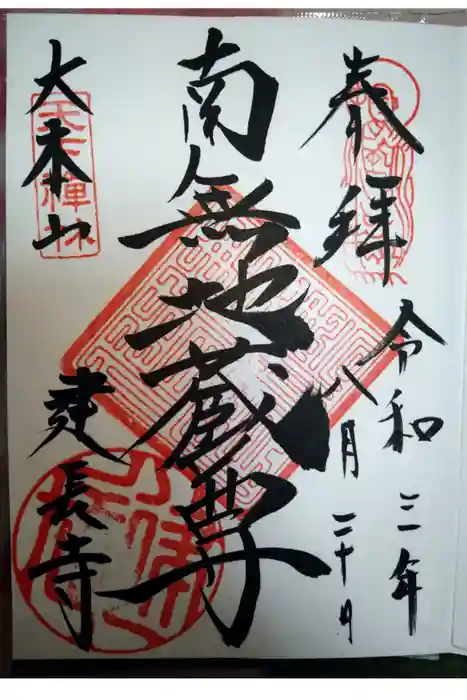 奉拝
令和三年
八月三十日
南無地蔵尊
大本山
建長寺
天下禅林